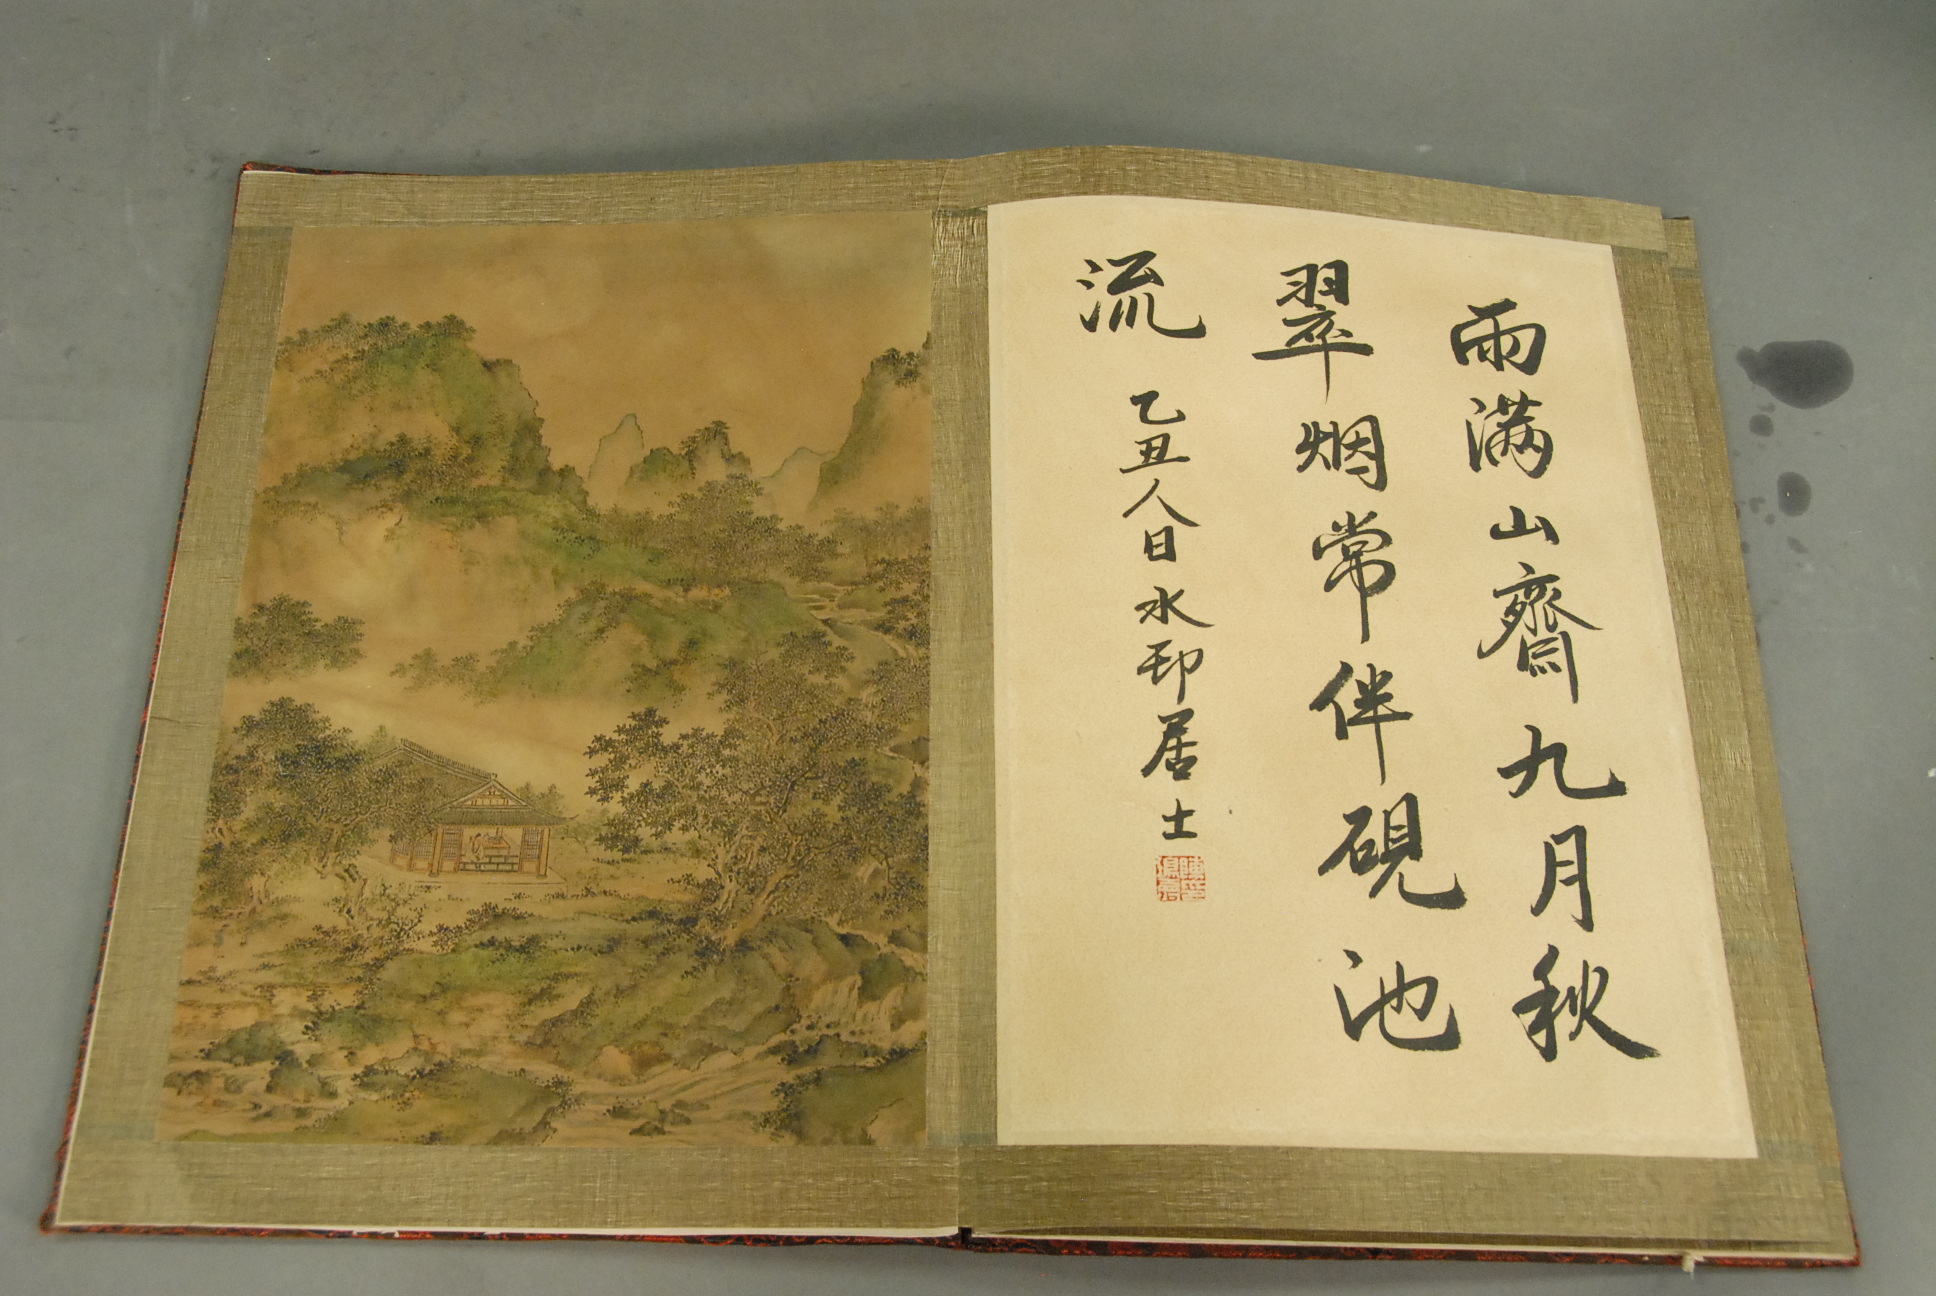 雨满山齋九月秋
翠烟常伴硯池
流
乙丑人日水印居士